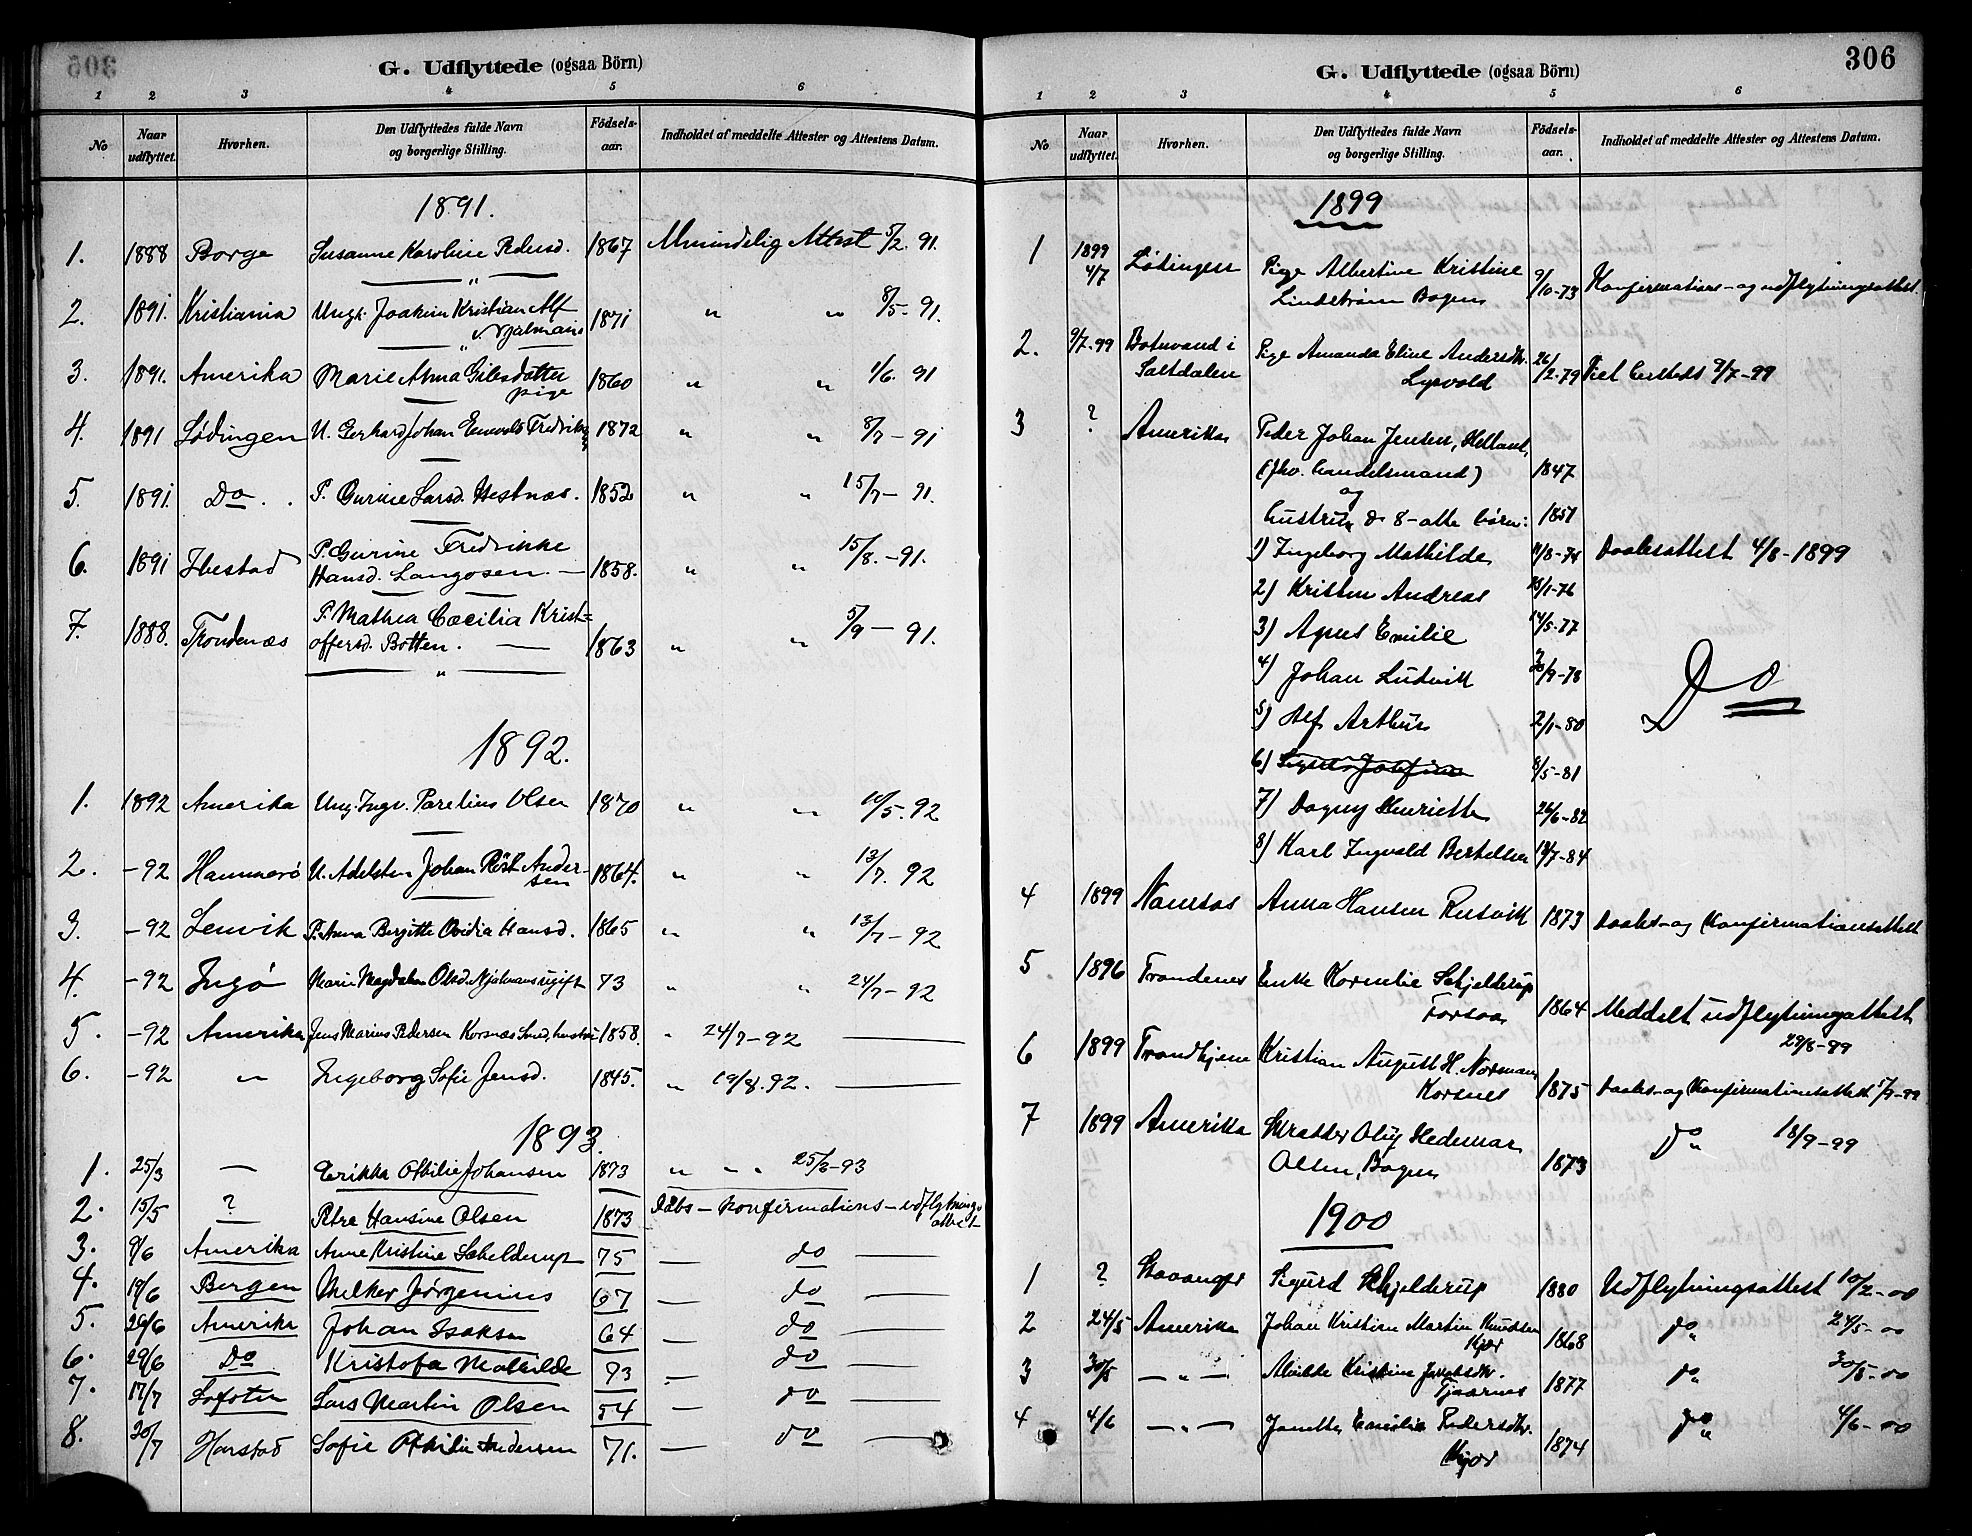 306
G. Udflyttede (ogsaa Börn)
1 2 3 4 5 6
No
Naar udflyttet.
Hvorhen.
Den Udflyttedes fulde Navn og borgerlige Stilling.
Födsels-aar.
Indholdet af meddelte Attester og Attestens Datum.
1891.
1. 1888 Borge Susanne Karoline Pedersd. 1867 Almindelig Attest 5/2. 91.
2. 1891. Kristiania Ungk. Joakim Kristian Alf Njalmans 1871 " " 8/5-91.
3. 1891. Amerika Marie Anna Gilesdatter pige 1860 " " 1/6. 91
4. 1891 Lödingen U. Gerhard Johan Enevold Fredriks 1872 " " 8/7-91
5. 1891. Do. P. Gurine Larsd. Hestnæs. 1852 " " 15/7-91.
6. 1891 Ibestad P. Gurine Fredrikke Hansd. Langosen. 1858. " " 15/8.-91.
7. 1888. Trondenæs P. Mathea Cæcilia Krist=
offersd. Botten. 1863 " " 5/9-91.
1892.
1. 1892 Amerika Ung. Ingv. Parelius Olsen 1870 " " 10/5. 92
2. -92 Hammerö U. Adelsten Johan Röst Andersen 1864. " " 13/7. 92
3. -92 Lenvik P. Anna Bergitte Ovidia Hansd. 1865 " " 13/7-92
4. -92 Ingö Marie Magdalena Olsd. Njalmans ugift 73 " " 24/7-92
5. -92 Amerika Jens Marius Pedersen Korsnæs Smed, hustru 1858. " 24/7-92
6. -92 " Ingeborg Sofie Jensd. 1845. " 19/8. 92.
1893.
1. 25/3 — Erikka Othilie Johansen 1873 " " " 25/3-93
2. 15/5 ? Petre Hansine Olsen 1873 Daabs-Konfirmations-udflytnings attest
3. 9/6 Amerika Anne Kristine Schelderup 75 — do —
4. 19/6 Bergen Melker Jørgenius 67 — do —
5. 29/6 Amerika Johan Isaksen 64 — do —
6. 29/6 Do Kristofa Mathilde 93 — do —
7. 17/7 Lofoten Lars Martin Olsen 54 — do —
8. 20/7 Harstad Sofie Othilie Andersen 71. — do —
G. Udflyttede (ogsaa Börn)
306
1 2 3 4 5 6
No
Naar udflyttet.
Hvorhen.
Den Udflyttedes fulde Navn og borgerlige Stilling.
Födsels-aar.
Indholdet af meddelte Attester og Attestens Datum.
1899
1 1899 4/7 Lødingen Pige Albertine Kristine
Lindstrøm Bogen 9/10-73 Konfirmations-og udflytningsattest.
2. 9/7-99 Botnvand i Saltdalen Pige Amanda Eline Andersdtr. Lysvold 26/2-79 9/7-99
3 ? Amerika Peder Johan Jensen, Helland,
(fhv. handelsmand) 1847
og
hustru & 8-otte børn: 1851
1) Ingeborg Mathilde 11/8-74 Daabsattest 4/8-1899
2) Kristen Andreas 18/1-76
3) Agnes Emilie 14/5-77
4) Johan Ludvik 20/9-78 Do
5) Alf Arthur 2/1-80
6) Josefine 8/5-81
7) Dagny Henriette 26/6-82
8) Karl Ingvald Bertelsen 19/7-84
4 1899 Namsos Anna Hansen Rutvik 1873 Daabs-og Konfirmationsattest
5 1896 Trondenes Enke Kornelie Schjelderup
Forsaa 1864 Meddelt udflytningsattest
29/8-99
6 1899 Trondhjem Kristian August H. Normann,
Korsnes 1875 Daabs-og Konfirmationsattest 5/9-99
7 1899 Amerika Skrædder Oluf Hedemar
Olsen, Bogen 1873 Do 18/9-99
1900
1 ? Stavanger Sigurd Schjelderup 1880 Udflytningsattest 10/2-00
2 24/5 Amerika Johan Kristian Martin Knudsen
Kjær 1868 do 24/5-00
3 30/5 — " — Alvilde Kristine Jakobsdtr.
Tjaarnes 1877 do 30/5-00
4 4/6 — " — Janette Emilie Pedersdtr.
Kjær 1874 do 4/6-00